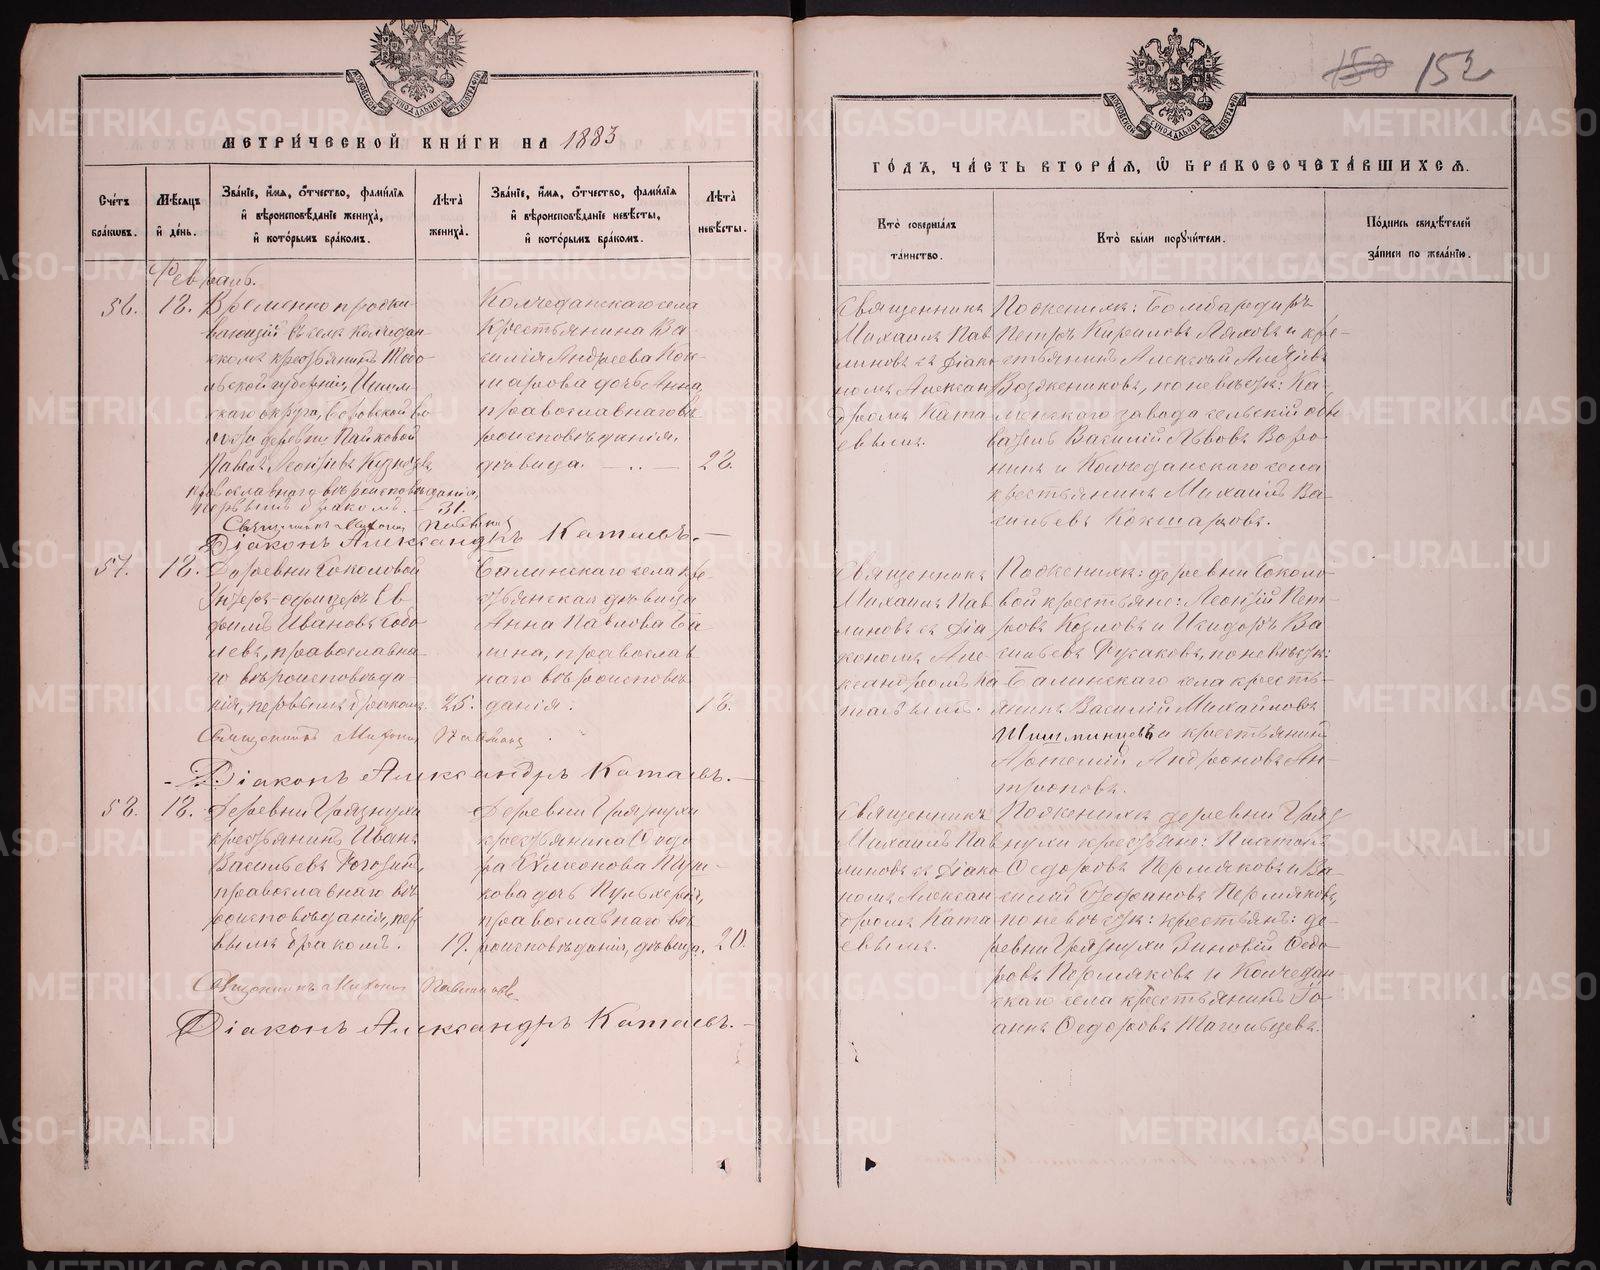 МЕТРИ́ЧЕСКОЙ КНИ́ГИ НА 1883
Сче́тъ бра́ковъ.
Мѣ́сяцъ и де́нь.
Зва́нїе, и́мя, о́тчество, фами́лїя и вѣроисповѣ́данїе жениха́, и кото́рымъ бра́комъ.
Лѣта̀ жениха̀.
Зва́нїе, и́мя, о́тчество, фами́лїя и вѣроисповѣ́данїе невѣ́сты, и кото́рымъ бра́комъ.
Лѣта̀ невѣ́сты.
Февраль.
56.
12.
Временно прожи-
вающій въ селѣ Колчедан-
скомъ крестьянинъ Тобо-
льской губерніи, Ишим-
скаго округа,
деревни
Павелъ Леонтіевъ
православнаго вѣроисповѣданія,
первымъ бракомъ. 31.
Колчеданскаго села
Крестьянина Ва-
силія Андреева Кок-
шарова дочь Анна,
православнаго вѣ-
роисповѣданія,
дѣвица. 22.
Священникъ
Діаконъ Александръ Катаевъ.
57.
12.
Деревни Соколовой
Унтеръ-офицеръ Ев-
фимъ Ивановъ
православна-
го вѣроисповѣда-
нія, первымъ бракомъ. 25.
села кре-
стьянская дѣвица
Анна Павлова
православ-
наго вѣроисповѣ-
данія. 18.
Священникъ
Діаконъ Александръ Катаевъ.
58.
12.
Деревни Грязнухи
крестьянинъ Иванъ
Васильевъ
православнаго вѣ-
роисповѣданія, пер-
вымъ бракомъ. 19.
Деревни Грязнухи
крестьянина Ѳедо-
ра Сѵмеонова
дочь Пульхерія,
православнаго вѣ-
роисповѣданія, дѣвица. 20.
Священникъ
Діаконъ Александръ Катаевъ.
150 152
ГО́ДЪ, ЧА́СТЬ ВТОРА́Я, Ѡ БРАКОСОЧЕТА́ВШИХСЯ.
Кто̀ соверша́лъ та́инство.
Кто̀ бы́ли поручи́тели.
По́дпись свидѣ́телей за́писи по жела́нїю.
Священникъ
Михаилъ Пав-
линовъ съ діако-
номъ Алексан-
дромъ Ката-
евымъ.
По женихѣ: Бомбардиръ
Петръ Кириловъ Ляховъ и кре-
стьянинъ Алексѣй
по невѣстѣ: Ка-
менскаго завода сельскій обы-
ватель Василій Львовъ Воро-
нинъ и Колчеданскаго села
крестьянинъ Михаилъ Ва-
сильевъ Кокшаровъ.
Священникъ
Михаилъ Пав-
линовъ съ діа-
кономъ Але-
ксандромъ Ка-
таевымъ.
По женихѣ: деревни Соколо-
вой крестьяне: Леонтій Пет-
ровъ Козловъ и Исидоръ Ва-
сильевъ Русаковъ, по невѣстѣ:
села кресть-
янинъ Василій Михайловъ
и крестьянинъ
Артемій Андроновъ Ан-
троповъ.
Священникъ
Михаилъ Пав-
линовъ съ діако-
номъ Алексан-
дромъ Ката-
евымъ.
По женихѣ деревни Гряз-
нухи крестьяне: Платонъ
Ѳедоровъ Пермяковъ и Ва-
силій Стефановъ Пермяковъ,
по невѣстѣ: крестьян: де-
ревни Грязнухи Зиновій Ѳедо-
ровъ Пермяковъ и Колчедан-
скаго села крестьянинъ Іо-
аннъ Ѳедоровъ Тагильцевъ.
METRIKI.GASO-URAL.RU